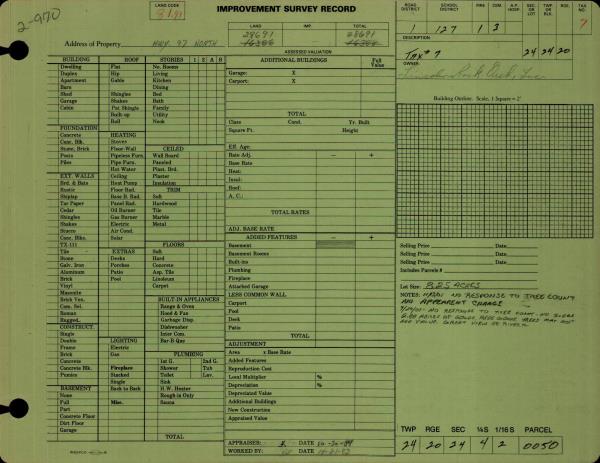 2-970
LAND CODE
IMPROVEMENT SURVEY RECORD
ROAD DISTRICT
SCHOOL DISTRICT
FIRE
CEM.
A.P. HOSP.
SEC. OR LOT
TWP. OR BLK.
RGE.
TAX NO.
1 127 1 3 7
LAND IMP. TOTAL
28691 28691
Address of Property HWY. 97 NORTH
ASSESSED VALUATION
DESCRIPTION:
TAX # 7 24 24 20
OWNER:
BUILDING ROOF STORIES 1 2 A B
Dwelling Flat No. Rooms
Duplex Hip Living
Apartment Gable Kitchen
Barn Dining
Shed Shingles Bed
Garage Shakes Bath
Cabin Pat. Shingle Family
Built-up Utility
Roll Nook
FOUNDATION
Concrete HEATING
Conc. Blk. Stoves CEILED
Stone, Brick Floor-Wall Wall Board
Posts Pipeless Furn. Paneled
Piles Pipe Furn. Plast. Brd.
Hot Water Plaster
EXT. WALLS Ceiling Insulation
Brd. & Bats Heat Pump TRIM
Rustic Floor Rad. Soft
Shiplap Base B. Rad. Hardwood
Tar Paper Panel Rad. Tile
Cedar Oil Burner Marble
Shingles Gas Burner Metal
Shakes Electric
Stucco Air Cond.
Conc. Blks. Solar
TX-111 FLOORS
Tile EXTRAS Soft
Stone Decks Hard
Galv. Iron Porches Concrete
Aluminum Patio Asp. Tile
Brick Pool Linoleum
Vinyl Carpet
Masonite
Brick Ven. BUILT-IN APPLIANCES
Com. Sel. Range & Oven
Roman Hood & Fan
Rugged. Garbage Disp.
CONSTRUCT. Dishwasher
Single Inter Com.
Double LIGHTING Bar-B-Que
Frame Electric
Brick Gas PLUMBING
Concrete 1st G. 2nd G.
Concrete Blk. Fireplace Shower Tub
Pumice Stacked Toilet Lav.
Single Sink
BASEMENT Back to Back H.W. Heater
None Rough in Only
Full Misc. Sauna
Part
Concrete Floor
Dirt Floor
Garage TOTAL
ADDITIONAL BUILDINGS Full Value
Garage: X
Carport: X
TOTAL
Class Cond. Yr. Built
Square Ft. Height
Eff. Age
Rate Adj. - +
Base Rate
Heat:
Insul:
Roof:
A. C.:
TOTAL RATES
ADJ. BASE RATE
ADDED FEATURES - +
Basement
Basement Rooms
Built-ins
Plumbing
Fireplace
Attached Garage
LESS COMMON WALL
Carport
Pool
Deck
Patio
TOTAL
ADJUSTMENT
Area x Base Rate
Added Features
Reproduction Cost
Local Multiplier %
Depreciation %
Depreciated Value
Additional Buildings
New Construction
Appraised Value
APPRAISER: DATE
WORKED BY: DATE
Building Outline: Scale, 1 Square = 2'
Selling Price Date
Selling Price Date
Selling Price Date
Includes Parcels #
Lot Size: 8.25 ACRES
NOTES: NO RESPONSE TO TREE COUNT
NO APPEARENT CHANGE
NO RESPONSE TO TREE COUNT
GREAT VIEW OF RIVER
TWP RGE SEC ¼S 1/16 S PARCEL
24 20 24 4 2 0050